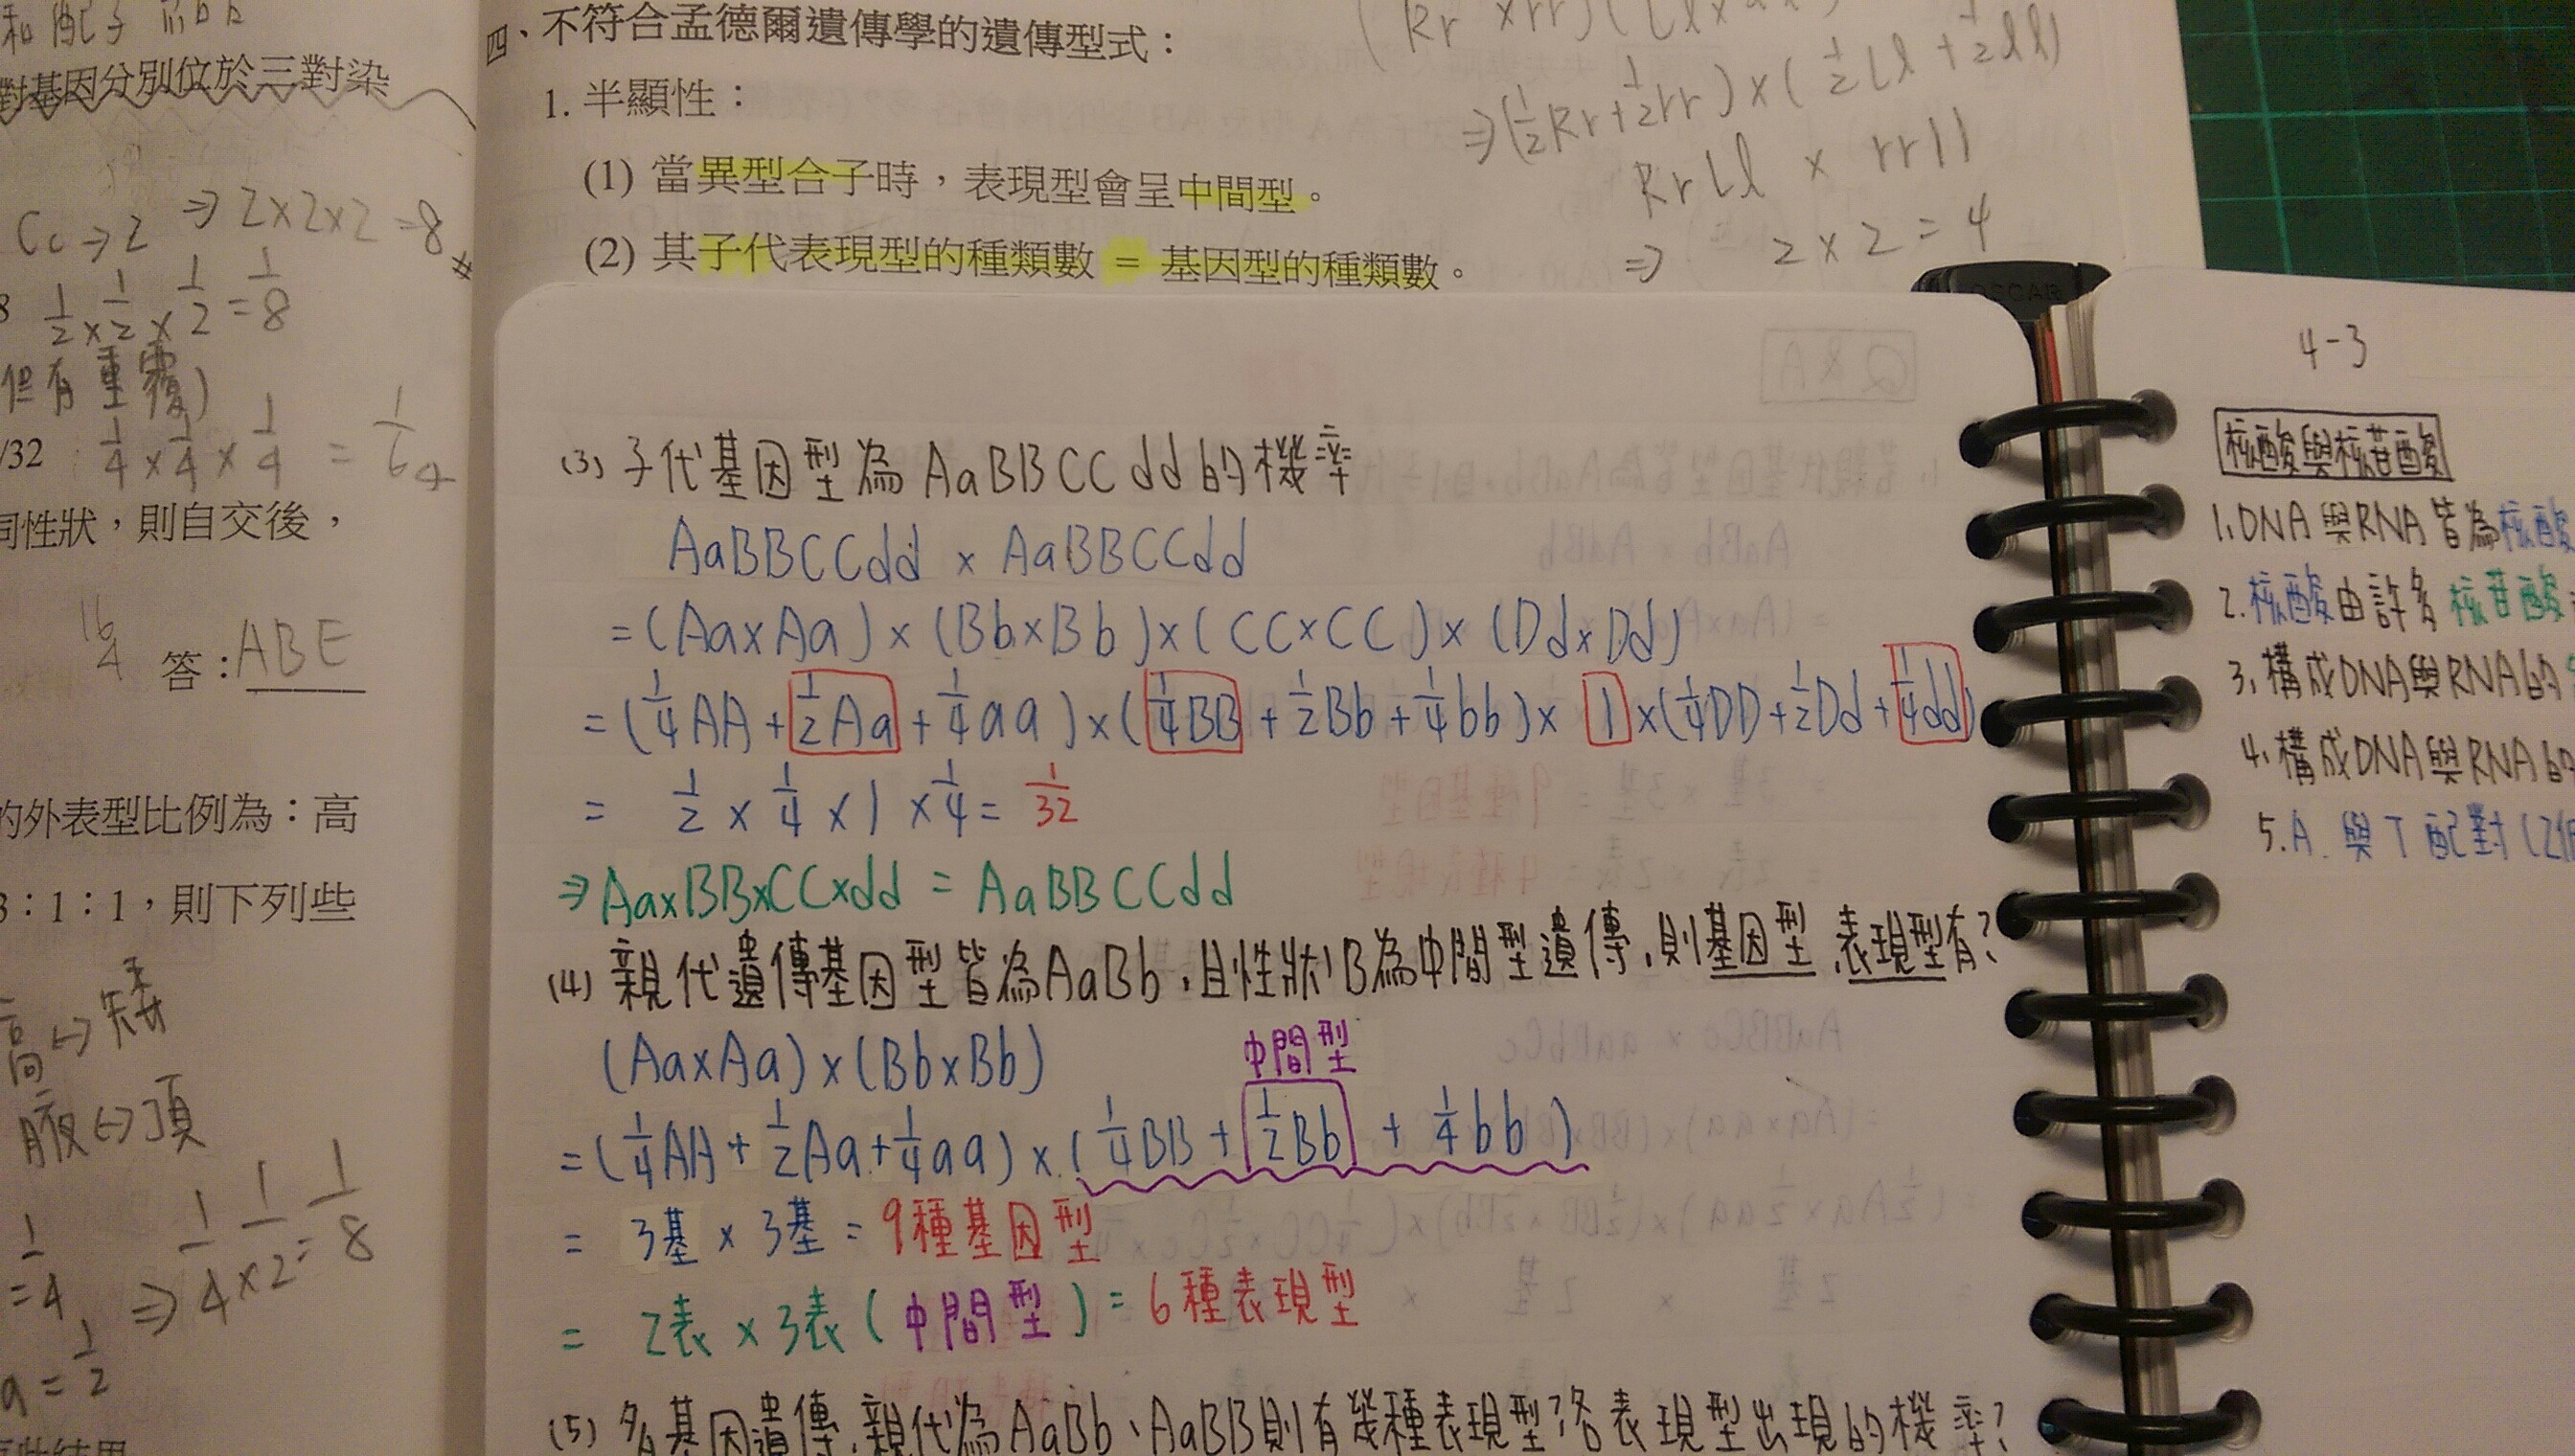 和配子
對基因分別位於三對染
Cc ⇒ 2 ⇒ 2×2×2 = 8 #
8 1/2 × 1/2 × 1/2 = 1/8
但有重覆)
/32 1/4 × 1/4 × 1/4 = 1/64
同性狀，則自交後，
16
4
答：ABE
的外表型比例為：高
3：1：1，則下列些
高↔矮
腋↔頂
= 1/4 ⇒ 1/4 × 1/2 = 1/8
a = 1/2
四、不符合孟德爾遺傳學的遺傳型式：
1. 半顯性：
(1) 當異型合子時，表現型會呈中間型。
(2) 其子代表現型的種類數 = 基因型的種類數。
⇒ (1/2 Rr + 1/2 rr) × (1/2 Ll + 1/2 ll)
RrLl × rrll
⇒ 2 × 2 = 4
(3) 子代基因型為 AaBBCCdd的機率
AaBBCCdd × AaBBCCdd
= (Aa×Aa) × (Bb×Bb) × (CC×CC) × (Dd×Dd)
= (1/4 AA + 1/2 Aa + 1/4 aa) × (1/4 BB + 1/2 Bb + 1/4 bb) × 1 × (1/4 DD + 1/2 Dd + 1/4 dd)
= 1/2 × 1/4 × 1 × 1/4 = 1/32
⇒ Aa×BB×CC×dd = AaBBCCdd
(4) 親代遺傳基因型皆為AaBb，且性狀B為中間型遺傳，則基因型、表現型有？
(Aa×Aa) × (Bb×Bb)
中間型
= (1/4 AA + 1/2 Aa + 1/4 aa) × (1/4 BB + 1/2 Bb + 1/4 bb)
= 3基 × 3基 = 9種基因型
= 2表 × 3表 (中間型) = 6種表現型
(5) 多基因遺傳，親代為AaBb、AaBB則有幾種表現型？各表現型出現的機率？
OSCAR
4-3
核酸與核苷酸
1. DNA與RNA皆為核酸
2. 核酸由許多核苷酸
3. 構成DNA與RNA的
4. 構成DNA與RNA的
5. A 與 T 配對 (2個